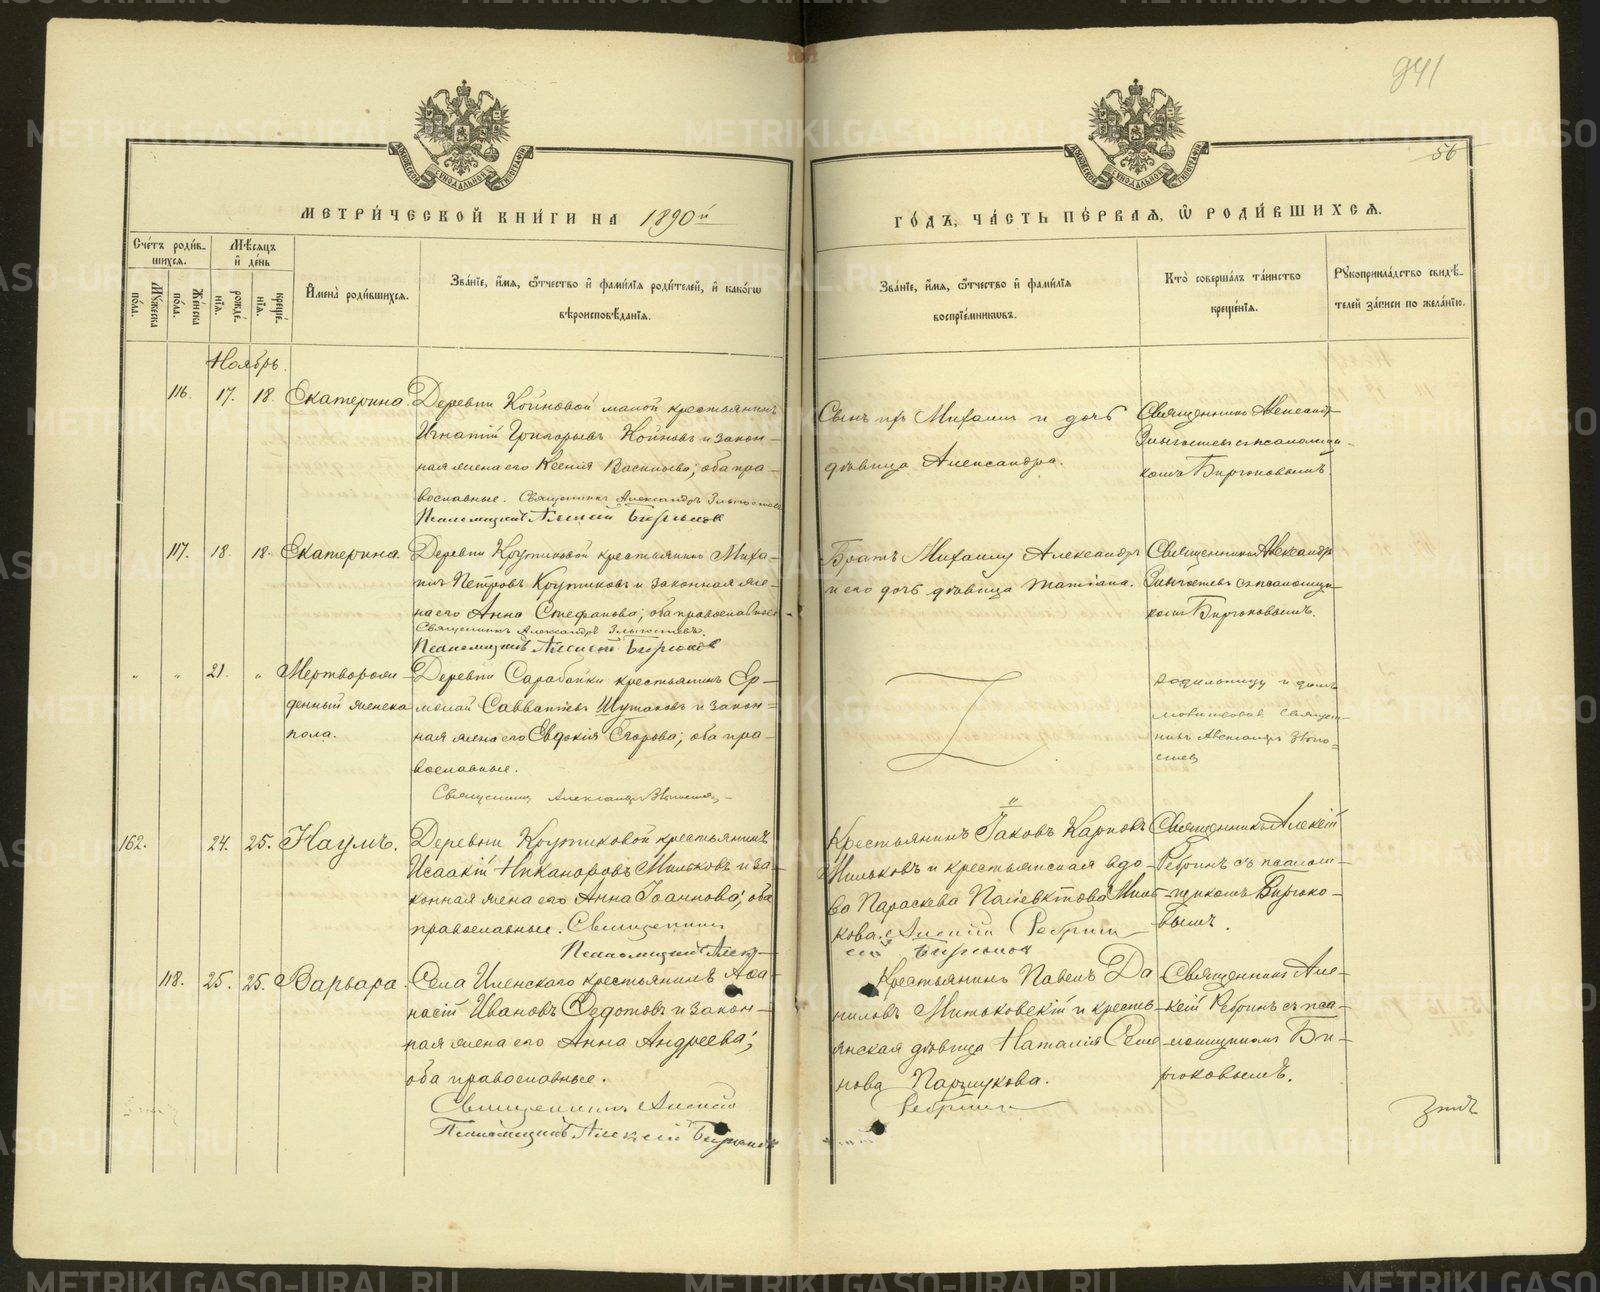 941
56
МЕТРИ́ЧЕСКОЙ КНИ́ГИ НА 1890й
ГО́ДЪ, ЧА́СТЬ ПЕ́РВАЯ, Ѡ РОДИ́ВШИХСЯ.
Сче́тъ роди́в-
шихся.
Мѣ́сяцъ
и҆ де́нь
Му́жеска
по́ла.
Же́нска
по́ла.
рожде́-
нїя.
креще́-
нїя.
И҆мена̀ роди́вшихся.
Зва́нїе, и҆́мя, ѻ҆́тчество и҆ фами́лїя роди́телей, и҆ како́гѡ
вѣроисповѣ́данїя.
Зва́нїе, и҆́мя, ѻ҆́тчество и҆ фами́лїя
воспрїе́мниковъ.
Кто̀ соверша́лъ та́инство
креще́нїя.
Рꙋкоприкла́дство свидѣ́-
телей за́писи по жела́нїю.
Ноябрь.
116. 17. 18. Екатерина.
Деревни Койновой малой крестьянинъ
Игнатій Григорьевъ Койновъ и закон-
ная жена его Ксения Васильева; оба пра-
вославные. Священникъ Александръ
Псаломщикъ Алексій Бирюков
Сынъ ихъ Михаилъ и дочь
дѣвица Александра.
Священникъ Александръ
съ псаломщи-
комъ Бирюковымъ
117. 18. 18. Екатерина.
Деревни Крутиковой крестьянинъ Миха-
илъ Петровъ Крутиковъ и законная же-
на его Анна Стефанова; оба православные
Священникъ Александръ
Псаломщикъ Алексій Бирюков
Братъ Михаилу Александръ
и его дочь дѣвица Татіана.
Священникъ Александръ
съ псаломщи-
комъ Бирюковымъ.
" " 21. " Мертворож-
денный женска
пола.
Деревни Сарабайки крестьянинъ Ер-
молай Савватѣевъ Шутаковъ и закон-
ная жена его Евдокія Егорова; оба пра-
вославные.
Священникъ Александръ
родильницу и домъ
молитвовал Священ-
никъ Александръ
162. 24. 25. Наумъ.
Деревни Крутиковой крестьянинъ
Исаакій Никаноровъ Мильковъ и за-
конная жена его Анна Іоаннова; оба
православные. Священникъ
Псаломщикъ Алек-
Крестьянинъ Іаковъ Карповъ
Мильковъ и крестьянская вдо-
ва Параскева Поліевктова Миль-
кова. Алексій Ребрин
сій Бирюков
Священникъ Алексій
Ребринъ съ псалом-
щикомъ Бирюко-
вымъ.
118. 25. 25. Варвара.
Села Иленскаго крестьянинъ Аѳа-
насій Ивановъ Ѳедотовъ и закон-
ная жена его Анна Андреева;
оба православные.
Священникъ Алексій
Псаломщикъ Алексій Бирюков
Крестьянинъ Павелъ Да
ниловъ Митьковскій и кресть-
янская дѣвица Наталія Семе-
нова Паршукова.
Ребрин
Священникъ Але-
ксій Ребринъ съ пса-
ломщикомъ Би-
рюковымъ.
METRIKI.GASO-URAL.RU